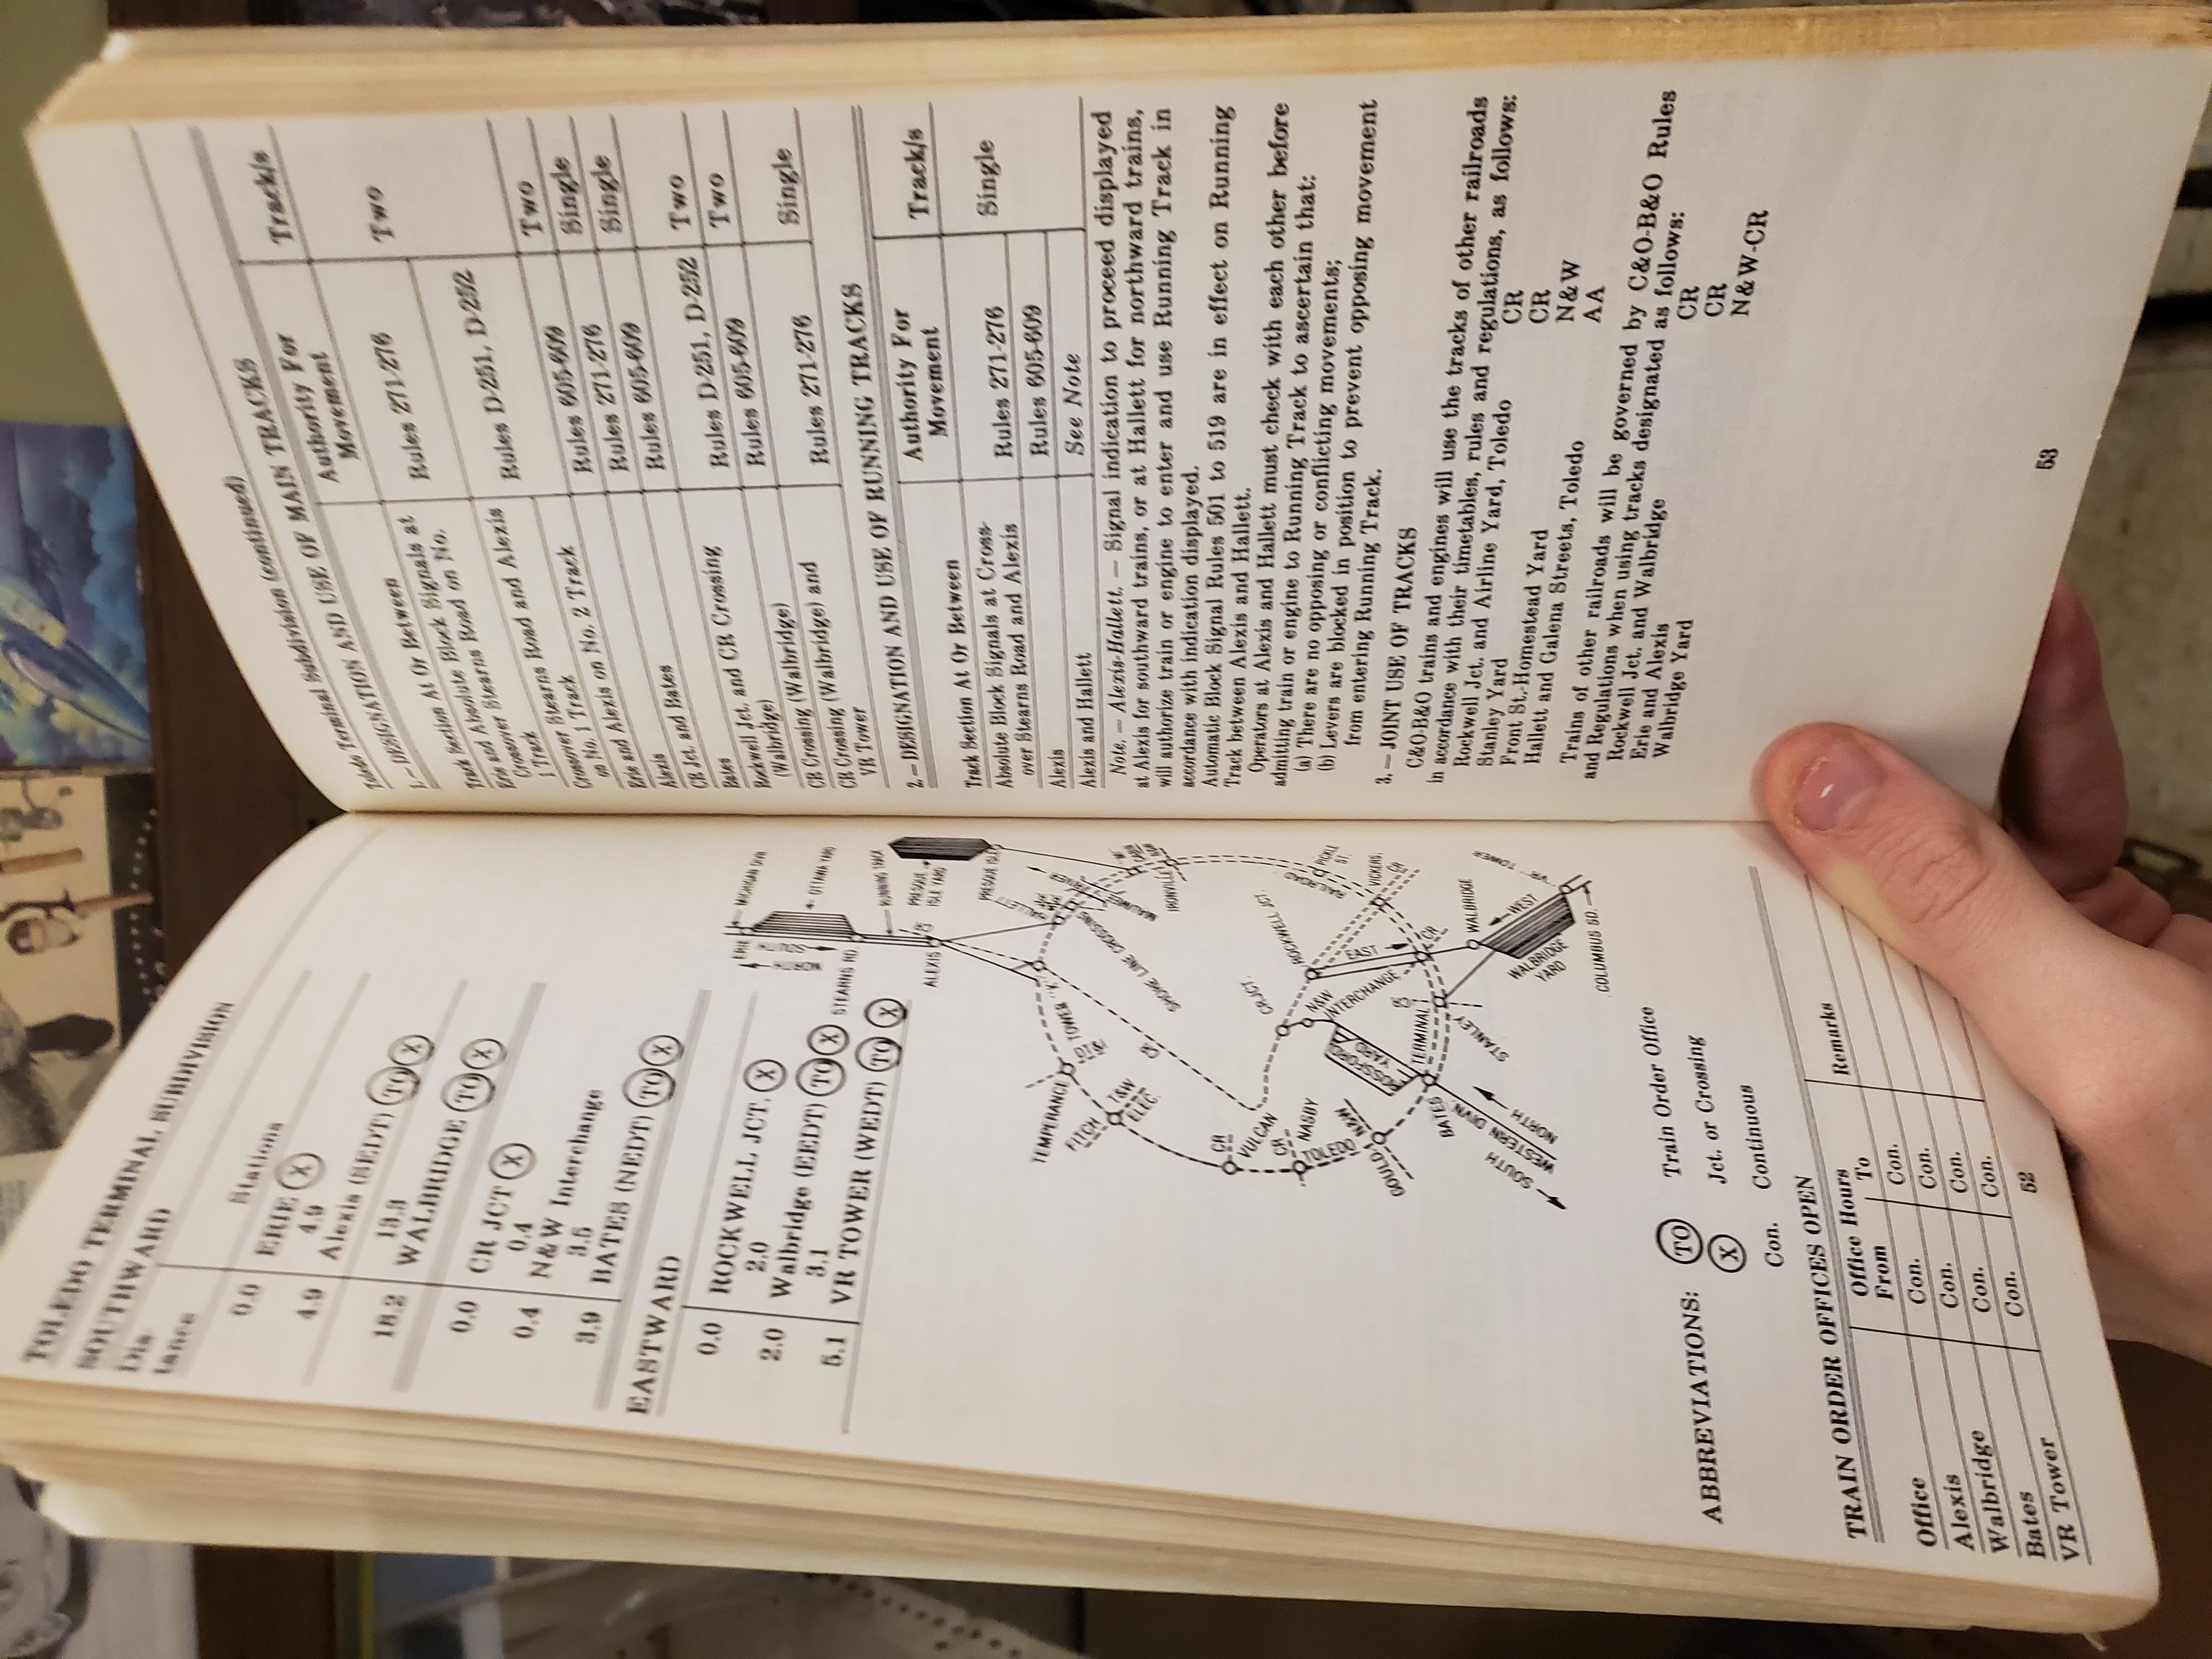 TOLEDO TERMINAL SUBDIVISION
SOUTHWARD
Dis-
tance
Stations
0.0 ERIE (X)
4.9
4.9 Alexis (SEDT) (TO) (X)
13.3
18.2 WALBRIDGE (TO) (X)
0.0 CR JCT (X)
0.4
0.4 N&W Interchange
3.5
3.9 BATES (NEDT) (TO) (X)
EASTWARD
0.0 ROCKWELL JCT. (X)
2.0
2.0 Walbridge (EEDT) (TO) (X)
3.1
5.1 VR TOWER (WEDT) (TO) (X)
MICHIGAN DIVN
ERIE
OTTAWA YARD
SOUTH
NORTH
STEARNS RD
RUNNING TRACK
PRESQUE
ISLE YARD
PRESQUE ISLE
ALEXIS
HALLETT
MAUMEE RIVER
SHORE LINE CROSSING
IRONVILLE
TOWER "K"
DTSL
TEMPERANCE
FITCH
T&W
ELEC.
CR
VULCAN
CR
NASBY
TOLEDO
N&W
GOULD
RAILROAD
PICKLE
ST.
VICKERS
CR
ROCKWELL JCT.
CR JCT.
N&W
INTERCHANGE
EAST
CR
WALBRIDGE
WEST
"VR" TOWER
WALBRIDGE
YARD
COLUMBUS SD.
ROSSFORD
YARD
TERMINAL
STANLEY
BATES
WESTERN DIVN.
NORTH
SOUTH
ABBREVIATIONS: (TO) Train Order Office
(X) Jct. or Crossing
Con. Continuous
TRAIN ORDER OFFICES OPEN
Office Hours
Office From To Remarks
Alexis Con. Con.
Walbridge Con. Con.
Bates Con. Con.
VR Tower Con. Con.
52
Toledo Terminal Subdivision (continued)
1.—DESIGNATION AND USE OF MAIN TRACKS
Track Section At Or Between
Authority For
Movement
Track/s
Erie and Absolute Block Signals at
Crossover Stearns Road on No.
1 Track
Rules 271-276
Two
Crossover Stearns Road and Alexis
on No. 1 Track
Rules D-251, D-252
Erie and Alexis on No. 2 Track
Alexis
Rules 605-609
Two
CR Jct. and Bates
Rules 271-276
Single
Bates
Rules 605-609
Single
Rockwell Jct. and CR Crossing
(Walbridge)
Rules D-251, D-252
Two
CR Crossing (Walbridge)
Rules 605-609
Two
CR Crossing (Walbridge) and
VR Tower
Rules 271-276
Single
2.—DESIGNATION AND USE OF RUNNING TRACKS
Track Section At Or Between
Authority For
Movement
Track/s
Absolute Block Signals at Cross-
over Stearns Road and Alexis
Rules 271-276
Single
Alexis
Rules 605-609
Alexis and Hallett
See Note
Note.—Alexis-Hallett.—Signal indication to proceed displayed
at Alexis for southward trains, or at Hallett for northward trains,
will authorize train or engine to enter and use Running Track in
accordance with indication displayed.
Automatic Block Signal Rules 501 to 519 are in effect on Running
Track between Alexis and Hallett.
Operators at Alexis and Hallett must check with each other before
admitting train or engine to Running Track to ascertain that:
(a) There are no opposing or conflicting movements;
(b) Levers are blocked in position to prevent opposing movement
from entering Running Track.
3.—JOINT USE OF TRACKS
C&O-B&O trains and engines will use the tracks of other railroads
in accordance with their timetables, rules and regulations, as follows:
Rockwell Jct. and Airline Yard, Toledo CR
Stanley Yard CR
Front St.-Homestead Yard N&W
Hallett and Galena Streets, Toledo AA
Trains of other railroads will be governed by C&O-B&O Rules
and Regulations when using tracks designated as follows:
Rockwell Jct. and Walbridge CR
Erie and Alexis CR
Walbridge Yard N&W-CR
53